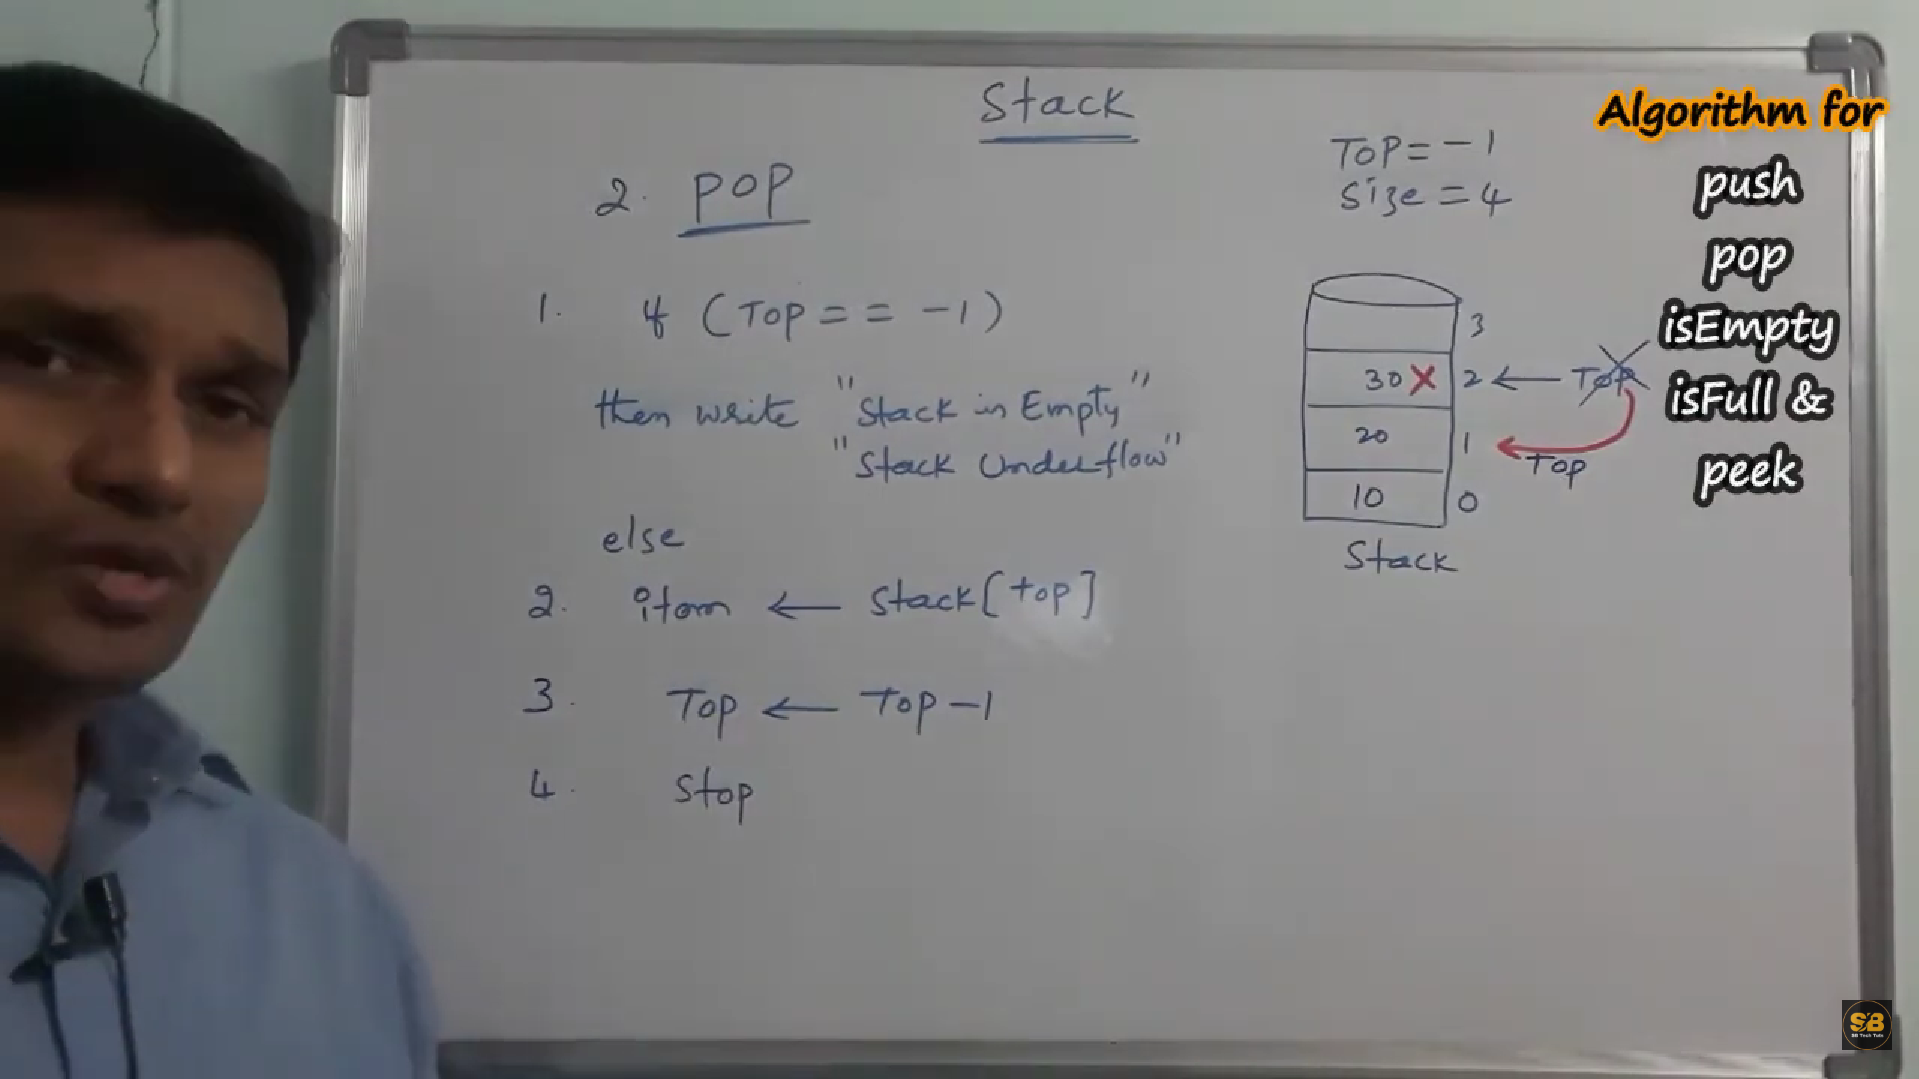 Stack
2. POP
1. if (Top == -1)
then write "Stack is Empty"
"Stack Underflow"
else
2. item ← Stack[top]
3. Top ← Top -1
4. Stop
TOP = -1
Size = 4
3
30 X 2 ← Top
20 1 Top
10 0
Stack
Algorithm for
push
pop
isEmpty
isFull &
peek
SB
SB Tech Tuts